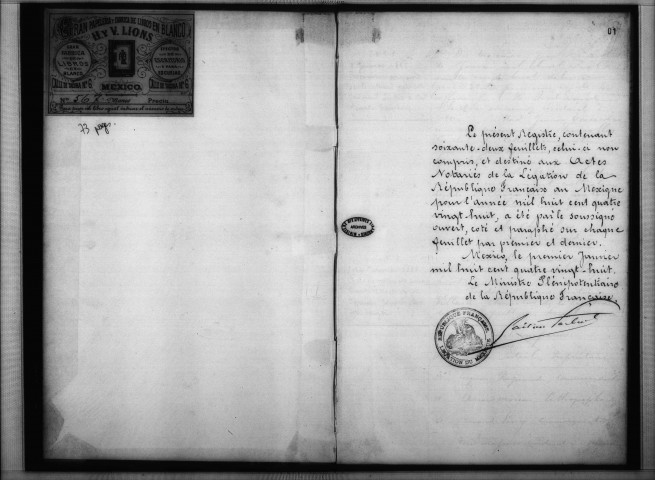 GRAN
EN BLANCO
H. Y V. LIONS
MEXICO.
CALLE DE TACUBA Nº 6
CALLE DE TACUBA Nº 6
Precio
01
Le présent Registre, contenant
soixante-deux feuillets, celui-ci non
compris, et destiné aux Actes
Notariés de la Légation de la
République Française au Mexique
pour l'année mil huit cent quatre
vingt-huit, a été par le soussigné
ouvert, coté et paraphé sur chaque
feuillet par premier et dernier.
Mexico, le premier Janvier
mil huit cent quatre vingt-huit.
Le Ministre Plénipotentiaire
de la République Française.
REPUBLIQUE FRANÇAISE
LEGATION DU